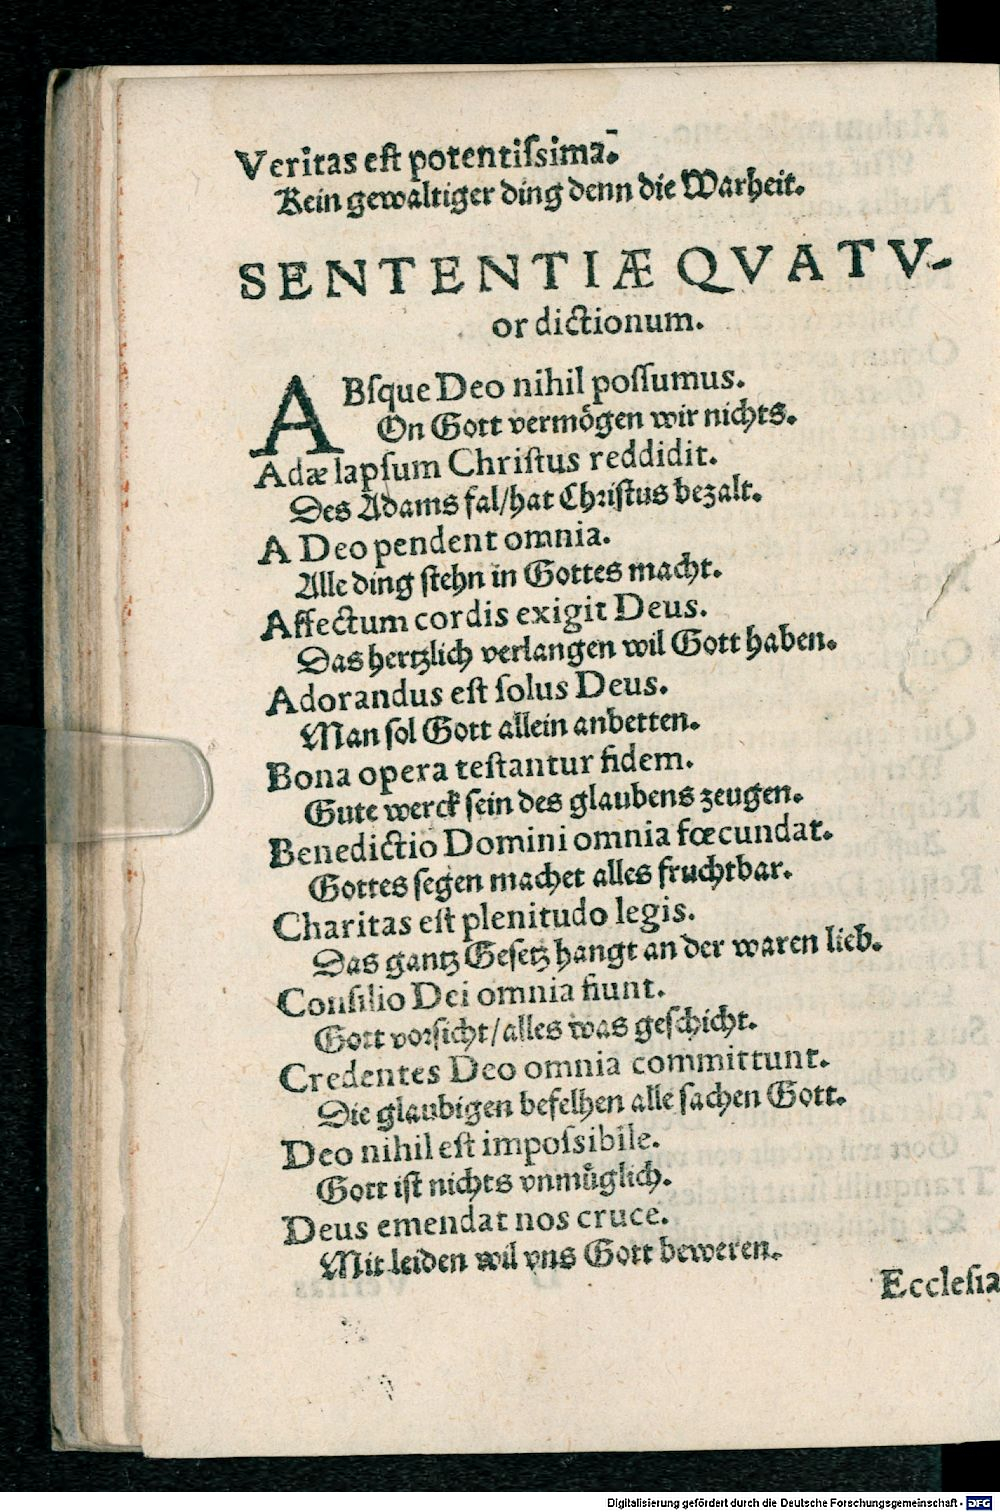 Veritas est potentissima.
Kein gewaltiger ding denn die Warheit.
SENTENTIÆ QVATV-
or dictionum.
ABsque Deo nihil possumus.
On Gott vermögen wir nichts.
Adæ lapsum Christus reddidit.
Des Adams fal/hat Christus bezalt.
A Deo pendent omnia.
Alle ding stehn in Gottes macht.
Affectum cordis exigit Deus.
Das hertzlich verlangen wil Gott haben.
Adorandus est solus Deus.
Man sol Gott allein anbetten.
Bona opera testantur fidem.
Gute werck sein des glaubens zeugen.
Benedictio Domini omnia fœcundat.
Gottes segen machet alles fruchtbar.
Charitas est plenitudo legis.
Das gantz Gesetz hangt an der waren lieb.
Consilio Dei omnia fiunt.
Gott vorsicht/alles was geschicht.
Credentes Deo omnia committunt.
Die glaubigen befelhen alle sachen Gott.
Deo nihil est impossibile.
Gott ist nichts vnmüglich.
Deus emendat nos cruce.
Mit leiden wil vns Gott beweren.
Ecclesia
Digitalisierung gefördert durch die Deutsche Forschungsgemeinschaft - DFG